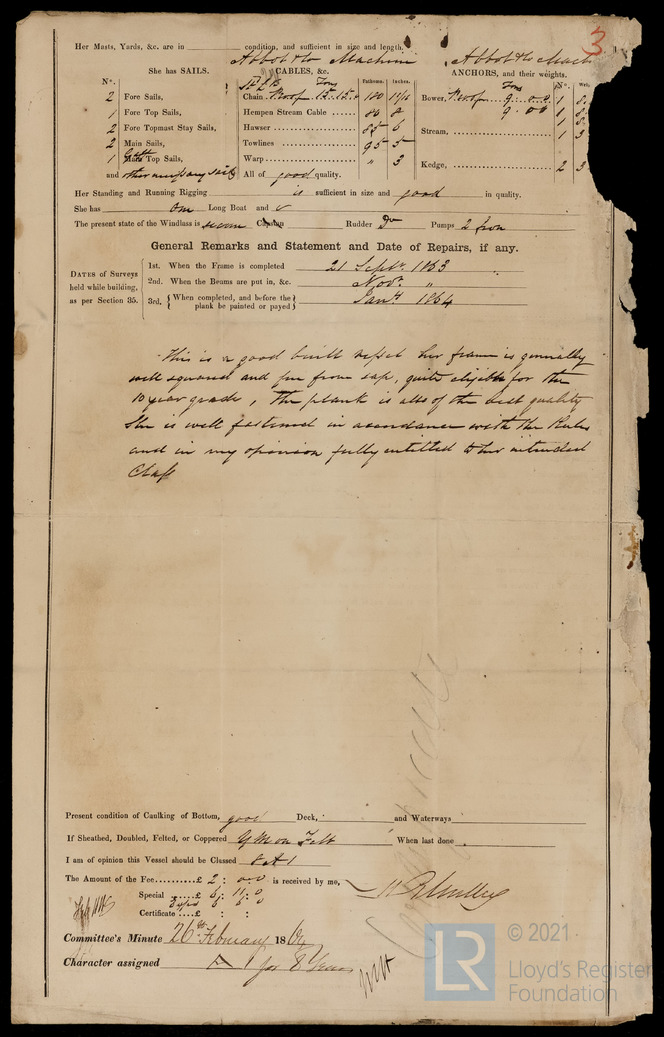 3
Her Masts, Yards, &c. are in condition, and sufficient in size and length.
Abbot & Co Machine
Abbot & Co Mach
She has SAILS.
CABLES, &c.
ANCHORS, and their weights.
N°.
Fathoms.
Inches.
N°.
2 Fore Sails,
1 Fore Top Sails,
2 Fore Topmast Stay Sails,
2 Main Sails,
1 Gaff Top Sails,
and other necessary sails
Tons
Chain Proof 15.15. 180 11/16
Hempen Stream Cable 8
Hawser 85 6
Towlines 95 5
Warp " 3
All of good quality.
Tons
Bower, Proof 9..0..0 1
9 00 1
1
Stream, 1 3
Kedge, 2 3
Her Standing and Running Rigging is sufficient in size and good in quality.
She has One Long Boat and
The present state of the Windlass is Capstan Rudder Do Pumps 2 Iron
General Remarks and Statement and Date of Repairs, if any.
DATES of Surveys
held while building,
as per Section 35.
1st. When the Frame is completed 21 Septr. 1863
2nd. When the Beams are put in, &c. Novr. "
3rd. { When completed, and before the plank be painted or payed } Jany 1864
This is a good built vessel her frame is generally
well squared and free from sap, quite eligible for the
10 year grade, The plank is also of the best quality
She is well fastened in accordance with the Rules
and in my opinion fully entitled to her intended
Class
Present condition of Caulking of Bottom, good Deck, and Waterways
If Sheathed, Doubled, Felted, or Coppered YM on Felt When last done
I am of opinion this Vessel should be Classed 8 A 1
The Amount of the Fee £ 2 : 0.0 is received by me,
Special £ 6 : 11 : 0
Certificate £ : :
Committee's Minute 26th February 1864
Character assigned A 1 for 8 Years
LR
© 2021
Lloyd's Register
Foundation